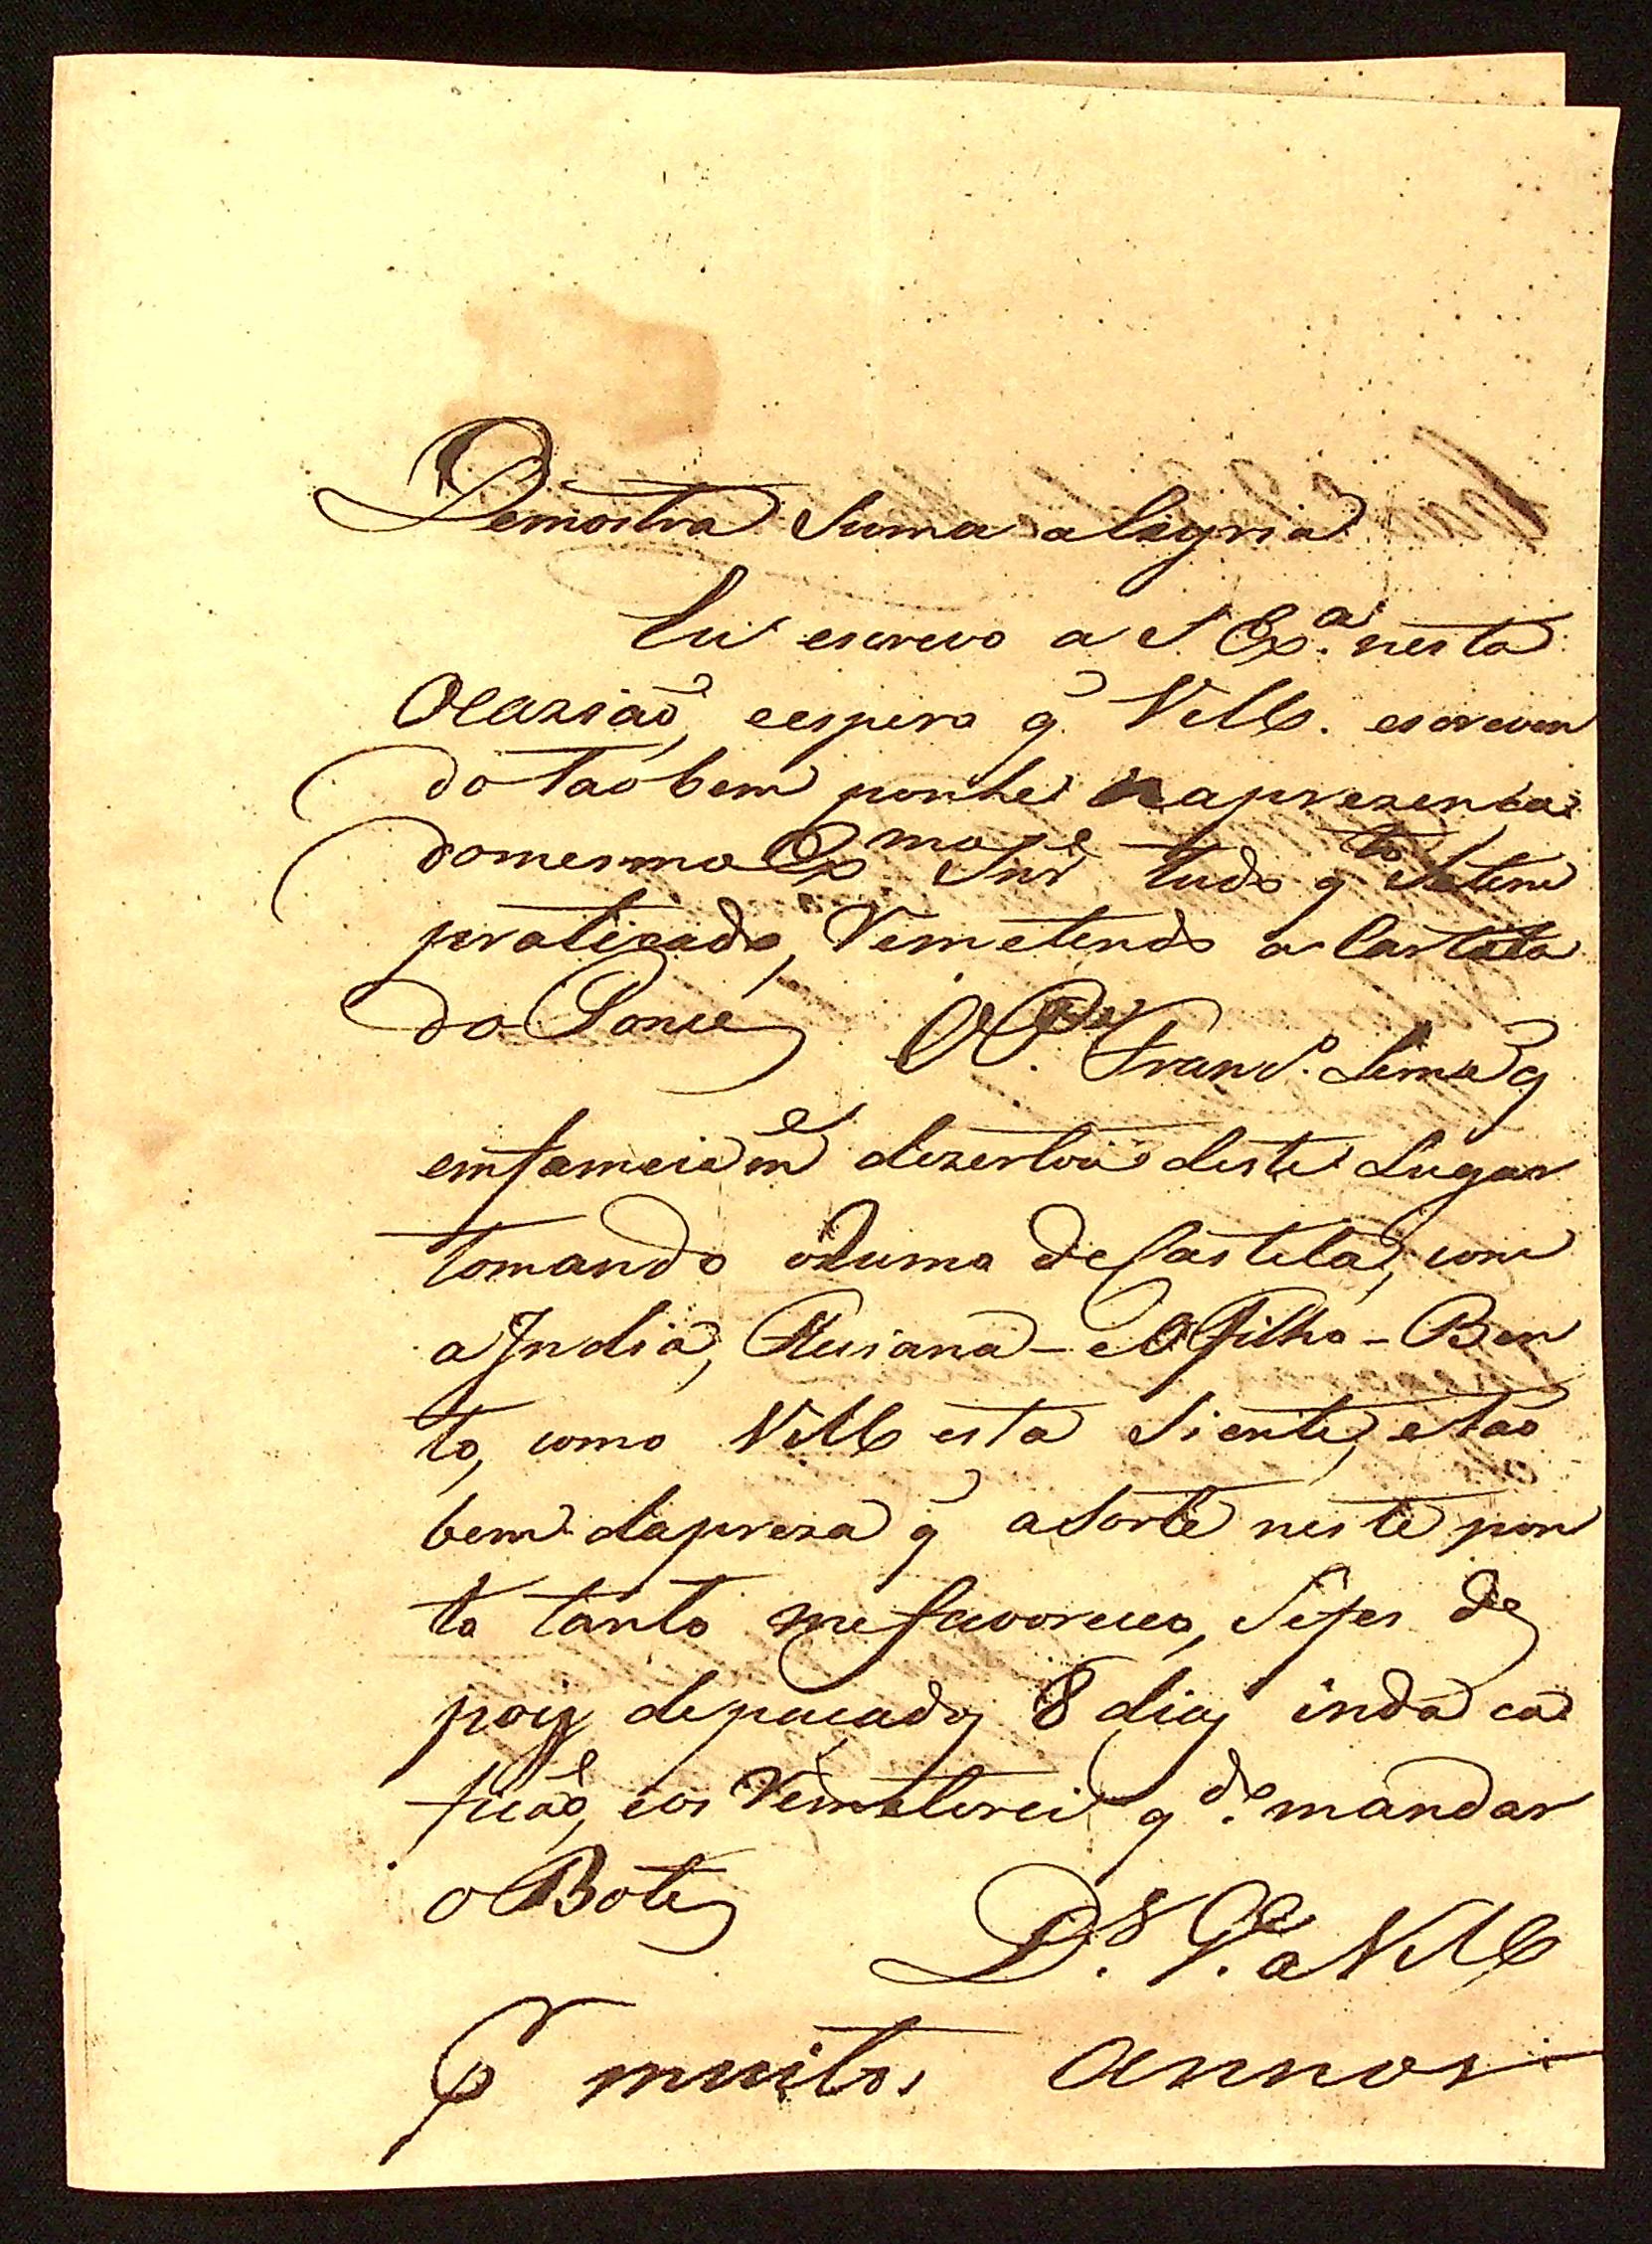 Demostra suma alegria
Eu escrevo a S Ex.ª nesta
Ocaziaõ, eespero q̃ VMce. escreven
do taõbem ponhe naprezenca
domesmo Exmo Snr tudo q.to Setem
praticado, Remetendo a Carta
do Ponce O P.e Franc.o Leme q
emfameiam.e dezertou deste Lugar
tomando orumo deCastela, com
aIndia, Ruiana - e O Filho - Ben
to, como VMce esta Siente, etaõ
bem dapreza q̃ aSorte neste pon
to tanto mefavoreceo, Sefes de
pois depacados 8 dias inda ca
ficaõ, eos Remeterei q.do mandar
o Bote
D.s G.e a VMce
Pr muitos annos